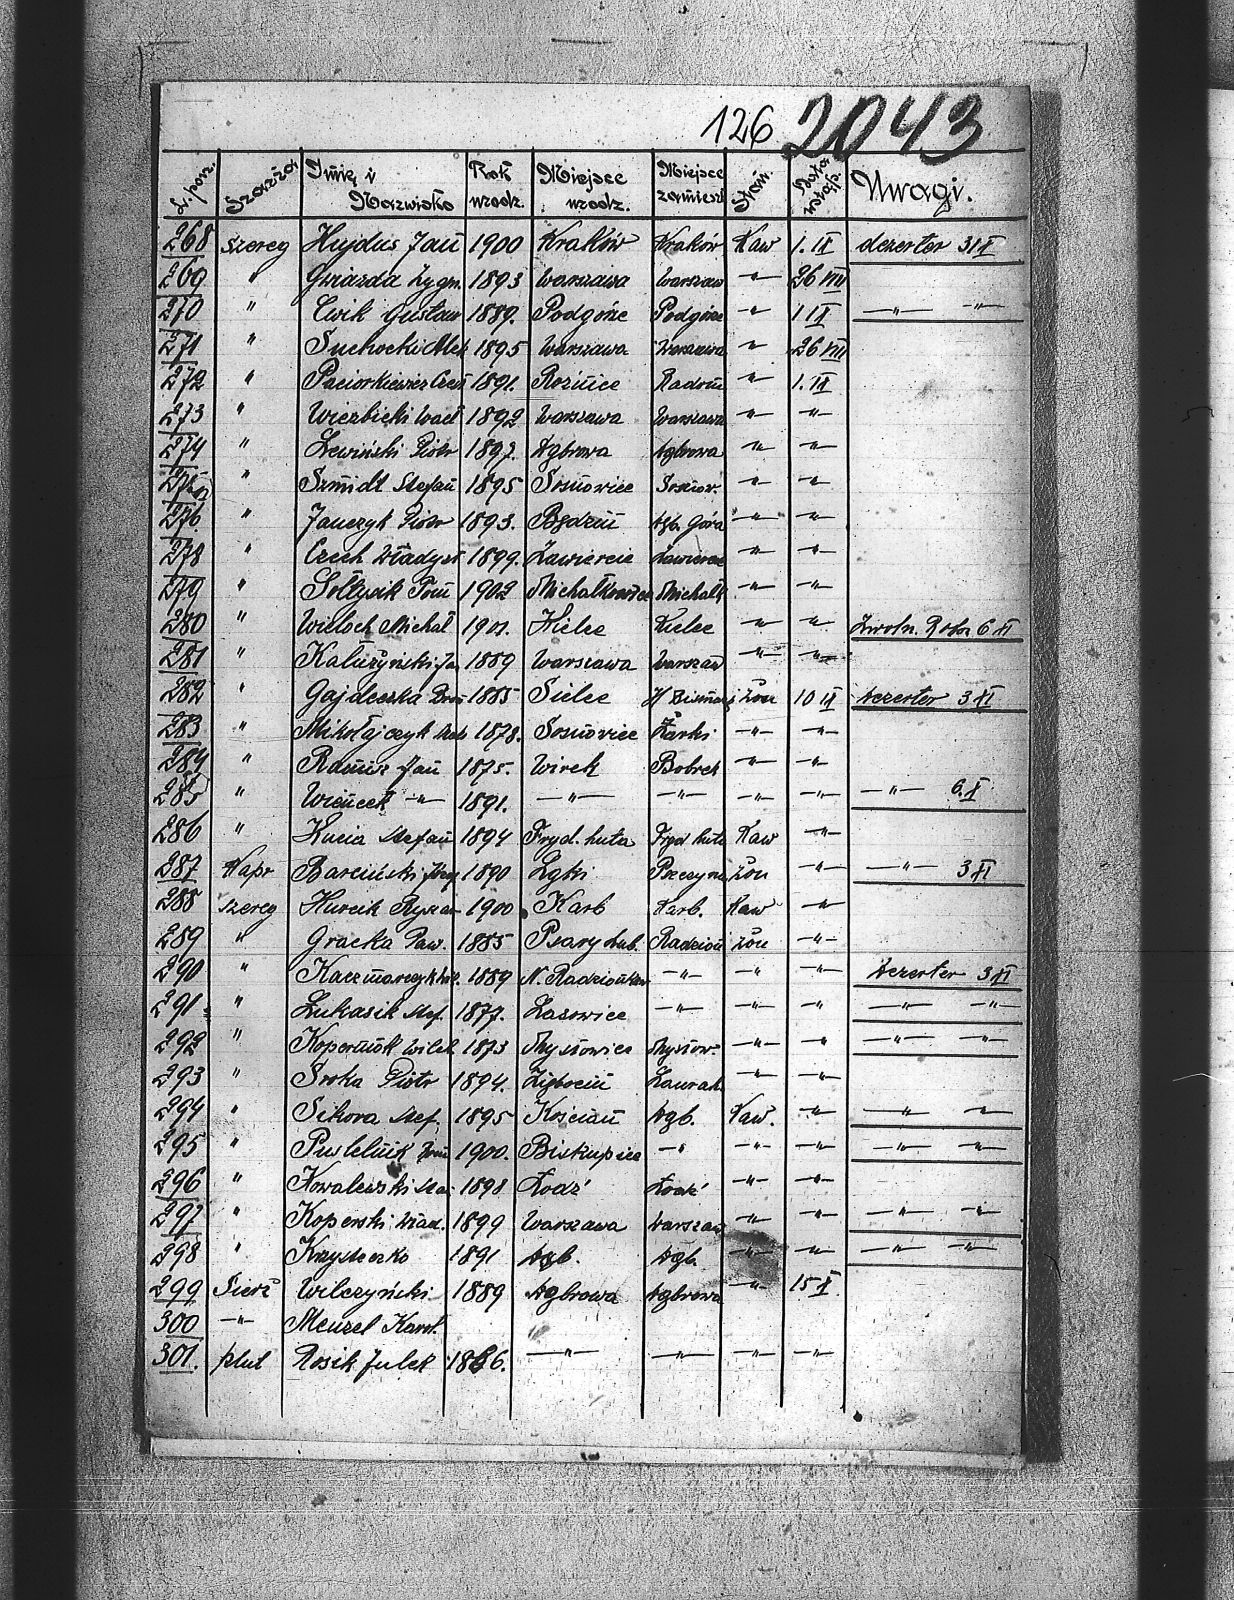 126 2043
L. porz. Szarża Imię i Nazwisko Rok urodz. Miejsce urodz. Miejsce zamiesz Stan. Data wstąp. Uwagi.
268 szereg Hujdus Jan 1900 Kraków Kraków Kaw 1. II dezerter 31 X
269 " Gwiazda Zygm. 1893 Warszawa Warszaw —"— 26 VIII
270 " Cwik Gustaw 1889. Podgórze Podgórze —"— 1 II —"— —"—
271 " Suchocki Alek 1895 Warszawa Warszawa " 26 VIII
272 " Paciorkiewicz Czes 1891. Radom —"— 1. II
273 " Wierbicki Wacł 1892 Warszawa Warszawa —"— —"—
274 " Lewiński Piotr 1897. Dąbrowa Dąbrowa —"— —"—
275 " Szmidt Stefan 1895 Sosnowiec Sosnow. —"— —"—
276. " Janczyk Piotr 1893. Będzin Dąb. Góra —"— —"—
278 " Czech Władysł 1899. Zawiercie Zawiercie —"— —"—
279 " Sołtysik Tom 1902 Michałkowice Michałk —"— —"—
280 " Wieloch Michał 1901. Kielce Kielce —"— —"— Zwoln. 6 XI
281 " Kałużyński Ja 1889 Warszawa Warszaw —"— —"—
282 " Gajdeczka 1885 Sielce żon 10 II dezerter 3 XI
283 " Mikołajczyk 1878. Sosnowiec Żarki —"— —"—
284 " Jan 1875. Wirek Bobrek —"— —"—
285 " Wieńcek —"— 1891. —"— —"— —"— —"— —"— 6. X
286 " Kucia Stefan 1894 Fryd. huta Fryd huta Kaw —"—
287 Kapr Barciński 1890 Łąki Pszczyna żon —"— —"— 3 XI
288 szereg Hurcik Ryszar 1900. Karb Karb. Kaw —"—
289 " Gracka Paw. 1885 Psary Lub. Radzion żon —"—
290 " Kaczmarczyk 1889 N. Radzionków —"— —"— " dezerter 3 XI
291 " Łukasik Stef. 1877. Lasowice —"— —"— " —"— —"—
292 " Kopernok Wilh. 1873 Mysłowice Mysłow. —"— —"— —"— —"—
293 " Sroka Piotr 1894. Laurah. —"— —"—
294 " Sikora Stef. 1895 Kościan Dąb. Kaw. —"— —"— —"—
295 " Pustelnik 1900. Biskupice —"— —"— —"— —"— —"—
296 " Kowalewski 1898 Łodź Łodź —"— —"—
297 " Koperski Wład. 1899 Warszawa Warszaw —"— —"— —"— —"—
298 " Krzysteczko 1891 Dąb. Dąb. —"— —"— —"— —"—
299 Sierż Wilczyński 1889 Dąbrowa Dąbrowa —"— 15 X
300 —"— Menzel Karol.
301. plut Rosik Julek 1886. —"— —"— —"— —"—